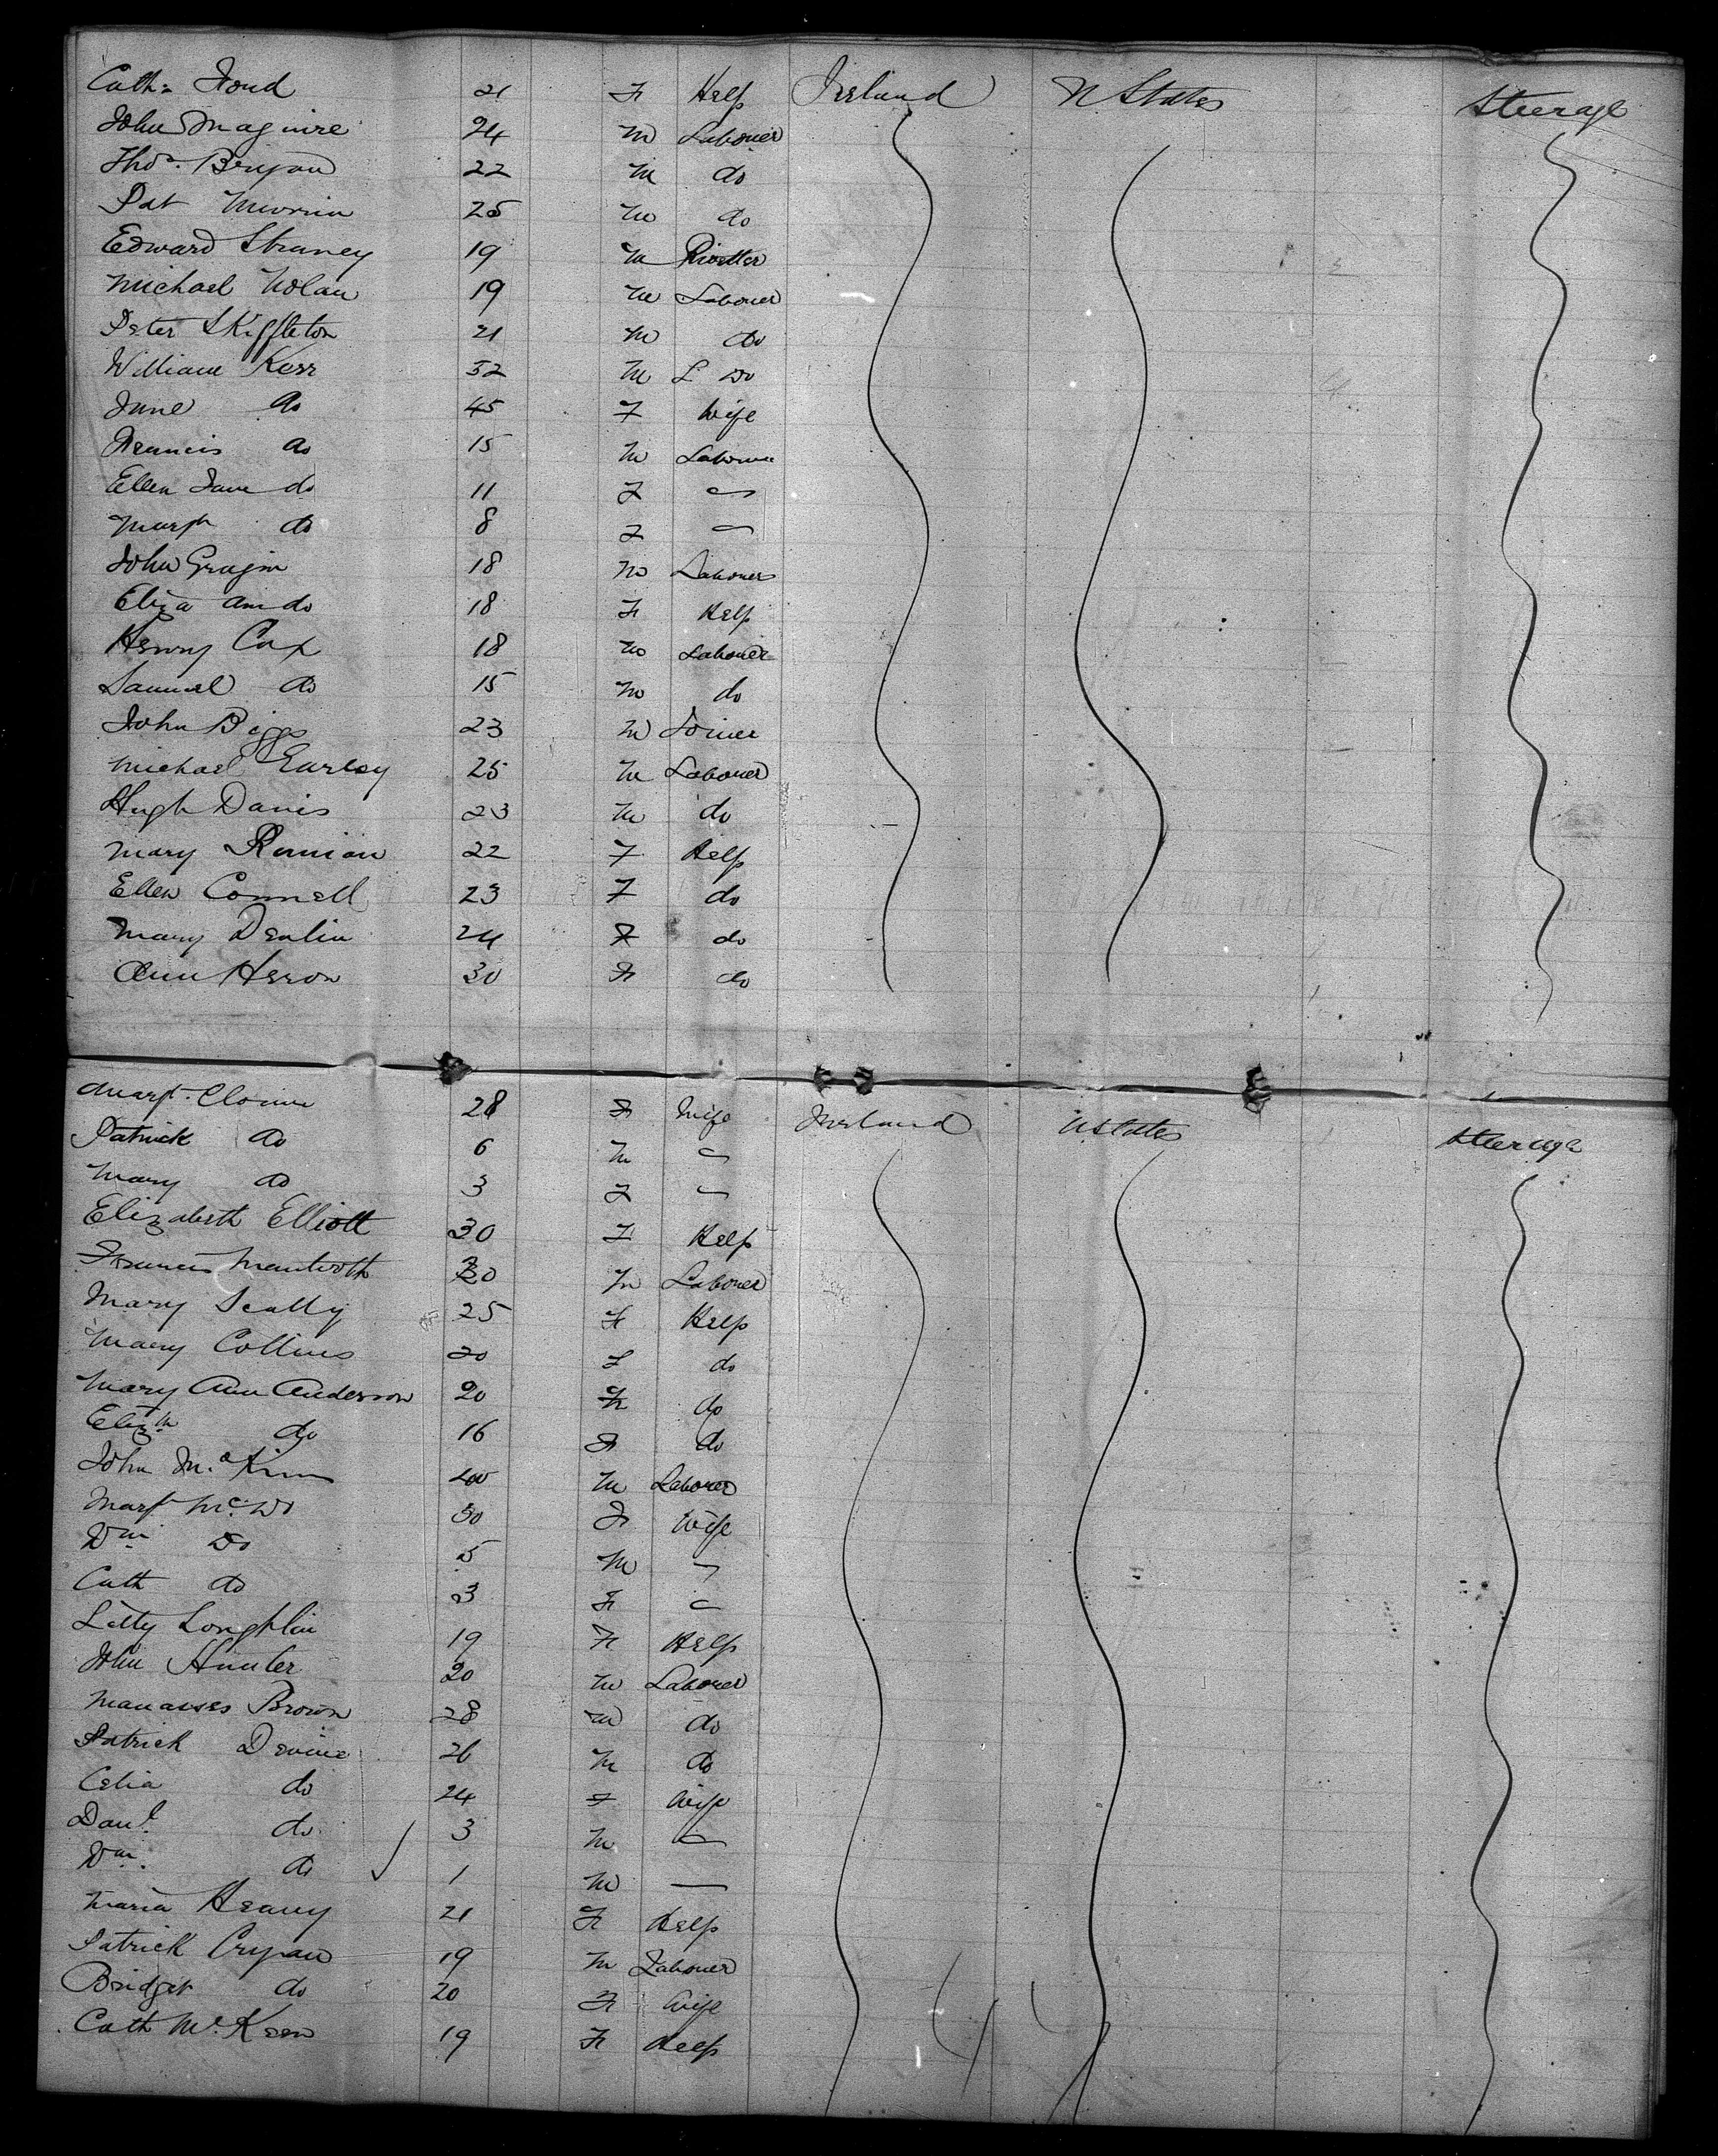 Cath: Ford 21 F Help Ireland U States Steerage
John Maguire 24 M Labourer
Thos. Bryan 22 M do
Pat 25 M do
Edward Straney 19 M Rivetter
Michael Nolan 19 M Labourer
Peter Skiffleton 21 M do
William Kerr 52 M L Do
Jane do 45 F Wife
Francis do 15 M Labourer
Ellen Jane do 11 F —
Margt do 8 F —
John 18 M Labourer
Eliza Ann do 18 F Help
Henry Cox 18 M Labourer
Samuel do 15 M do
John Biggs 23 M Joiner
Michael Earley 25 M Labourer
Hugh Davis 23 M do
Mary 22 F Help
Ellen Connell 23 F do
Mary Devlin 24 F do
Ann Herron 30 F do
Margt. 28 F Wife Ireland U States Steerage
Patrick do 6 M —
Mary do 3 F —
Elizabeth Elliott 30 F Help
Francis 30 M Labourer
Mary Scally 25 F Help
Mary Collins 20 F do
Mary Ann Anderson 20 F do
Elizth do 16 F do
John Mc 40 M Labourer
Margt Mc Do 30 F Wife
Wm Do 5 M —
Cath do 3 F —
Letty Loughlin 19 F Help
John Hunter 20 M Labourer
Manasses Brown 28 M do
Patrick Devine 26 M do
Celia do 24 F Wife
Danl. do 3 M —
Wm. do 1 M —
Maria Heany 21 F Help
Patrick Cryan 19 M Labourer
Bridget do 20 F Wife
Cath McKeen 19 F Help